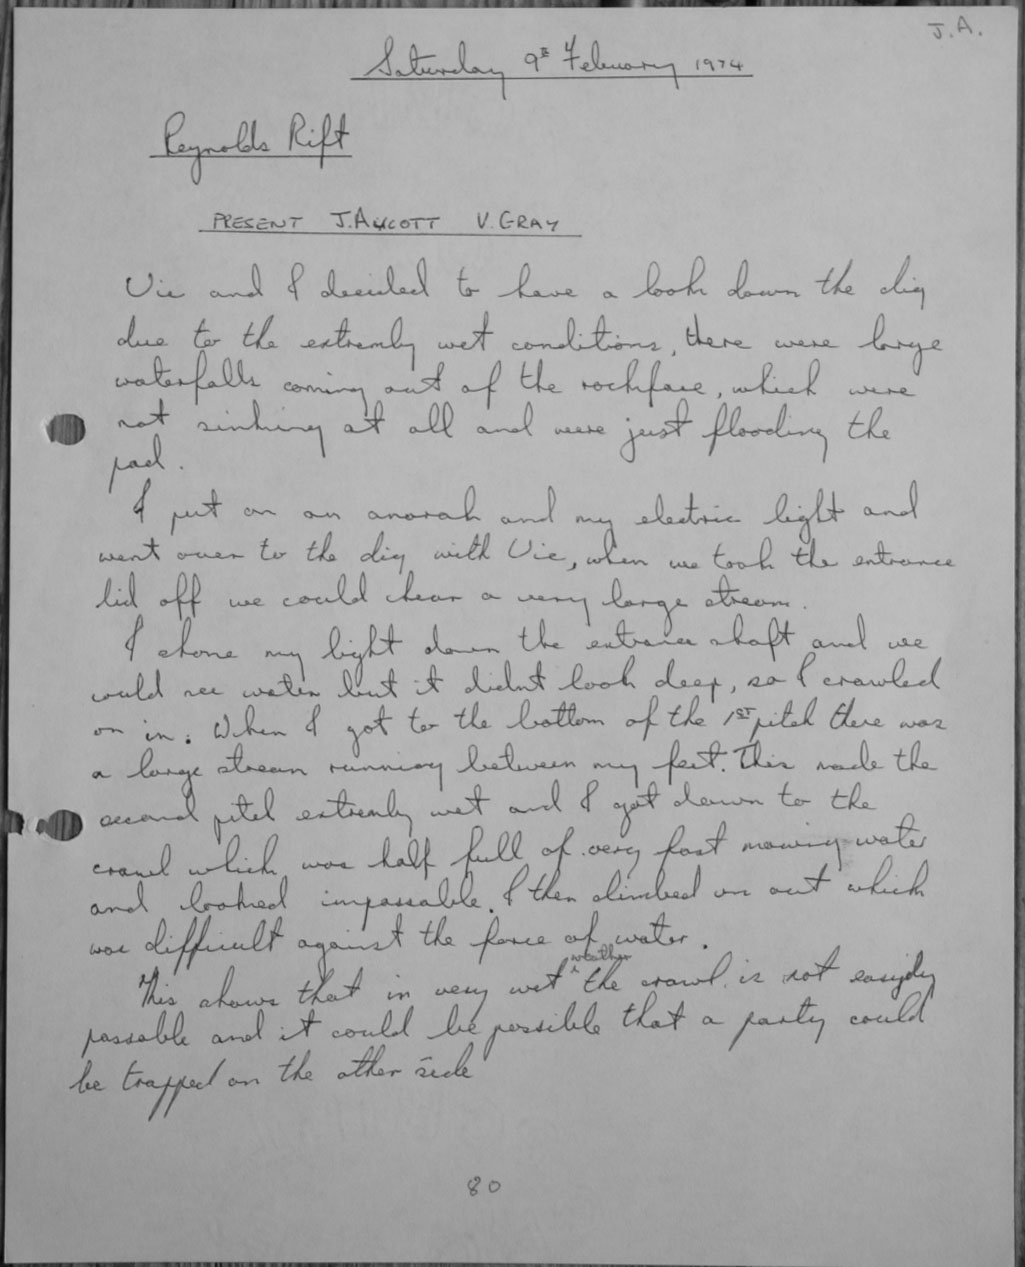 J.A.
Saturday 9th February 1974
Reynolds Rift
PRESENT J.AYCOTT V. GRAY
Vic and I decided to have a look down the dig
due to the extremly wet conditions, there were large
waterfalls coming out of the rockface, which were
not sinking at all and were just flooding the
pad.
I put on an anorak and my electric light and
went over to the dig with Vic, when we took the entrance
lid off we could hear a very large stream.
I shone my light down the entrance shaft and we
could see water but it didnt look deep, so I crawled
on in. When I got to the bottom of the 1ST pitch there was
a large stream running between my feet. This made the
second pitch extremly wet and I got down to the
crawl which was half full of very fast moving water
and looked impassable. I then climbed on out which
was difficult against the force of water.
This shows that in very wet weather the crawl is not easidly
passable and it could be possible that a party could
be trapped on the other side
80